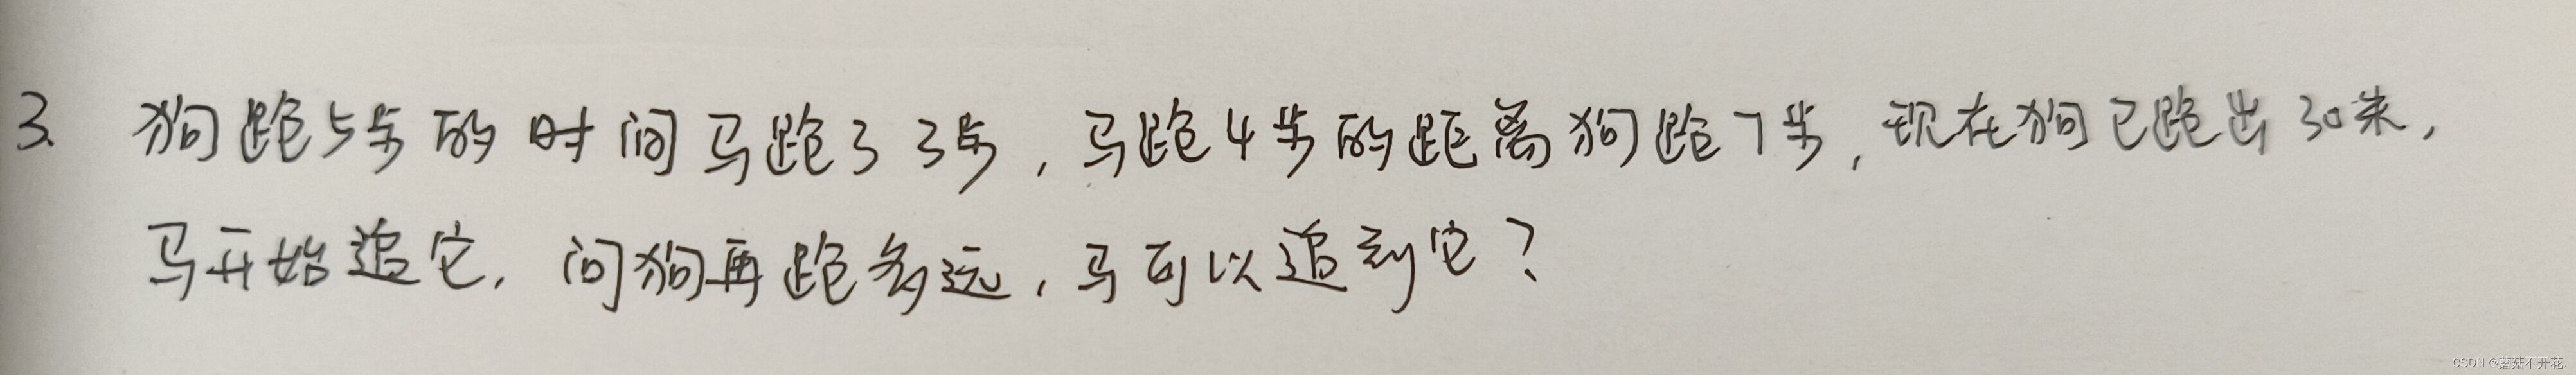 3. 狗跑5步的时间马跑3 3步,马跑4步的距离狗跑7步,现在狗已跑出30米,
马开始追它,问狗再跑多远,马可以追到它?
CSDN @蘑菇不开花.